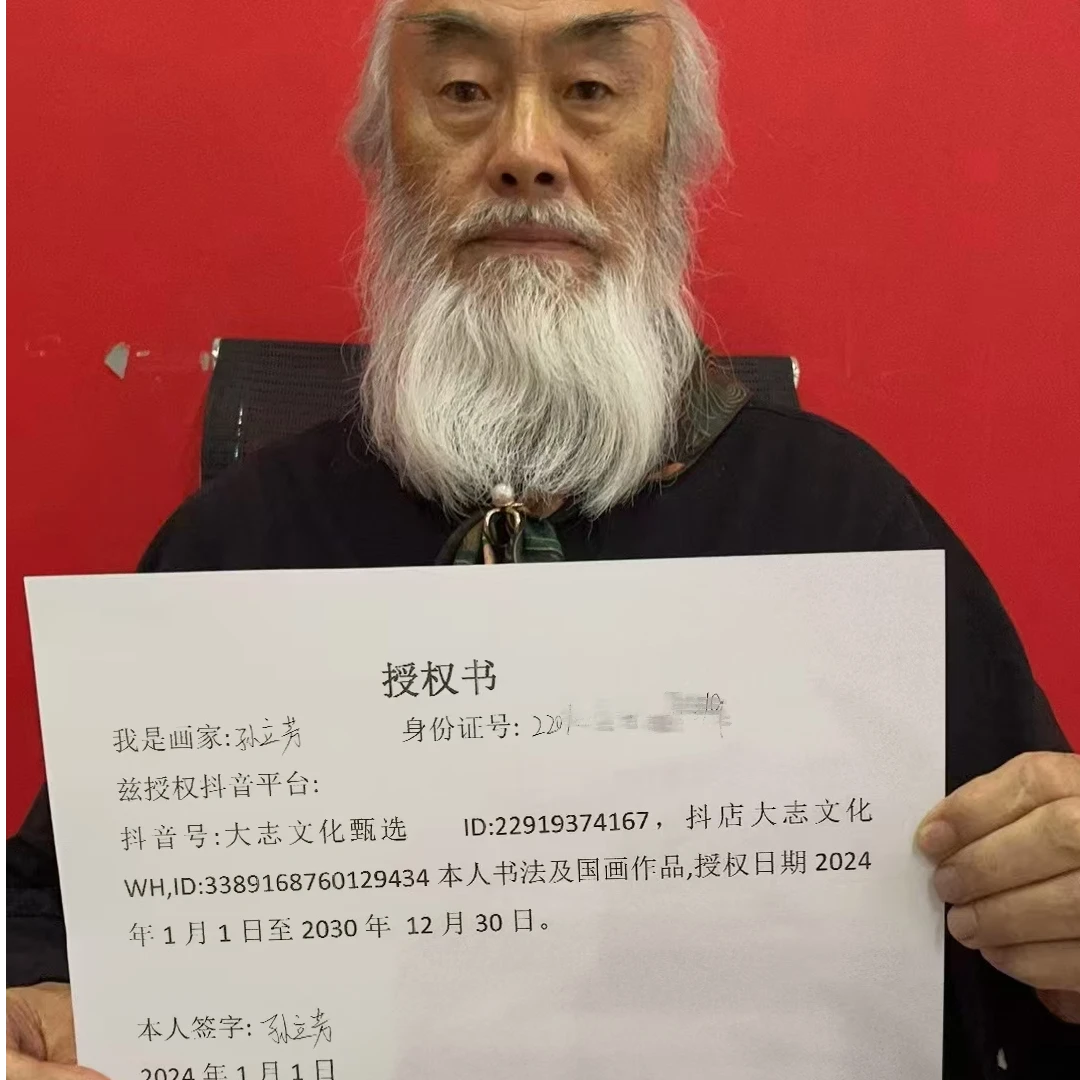 授权书
我是画家:孙立芳 身份证号: 220
兹授权抖音平台:
抖音号:大志文化甄选 ID:22919374167，抖店大志文化
WH,ID:3389168760129434本人书法及国画作品,授权日期2024
年1月1日至2030年 12月30日。
本人签字: 孙立芳
2024年1月1日